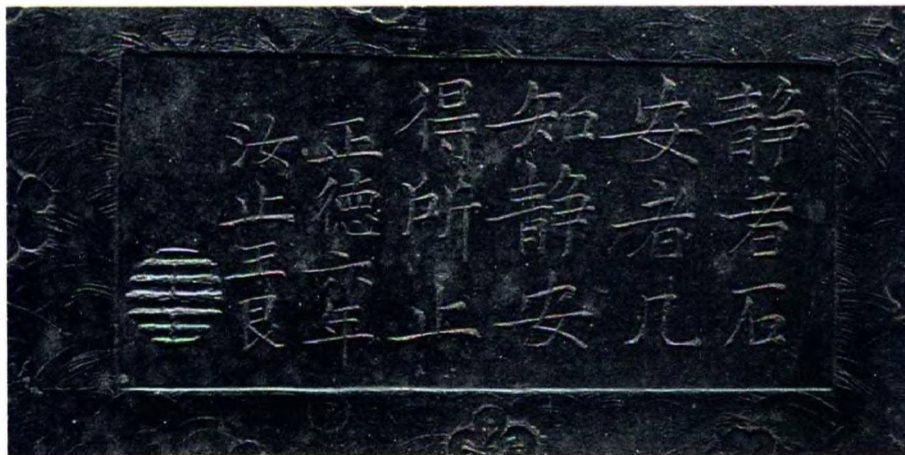 静者石
安者几
知静安
得所止
正德六年
汝止王艮